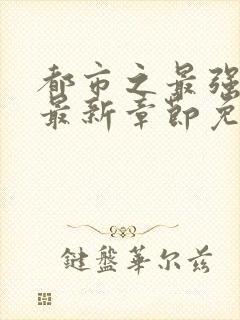 都市之最强
最新章节免
鍵盤華尔兹